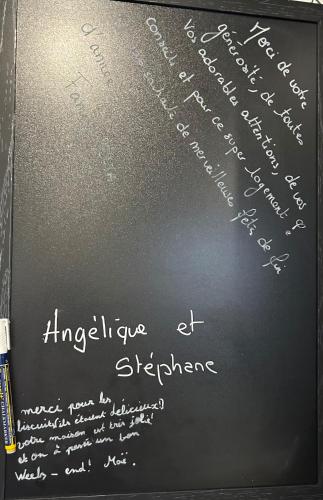 Merci de votre
générosité, de toutes
vos adorables attentions, de vos
conseils et pour ce super logement !
souhaite de merveilleuses fêtes de fin
d'année
Angélique et
Stéphane
merci pour les
biscuits (ils étaient délicieux!)
votre maison est très jolie!
et on a passé un bon
Week-end! Maé.